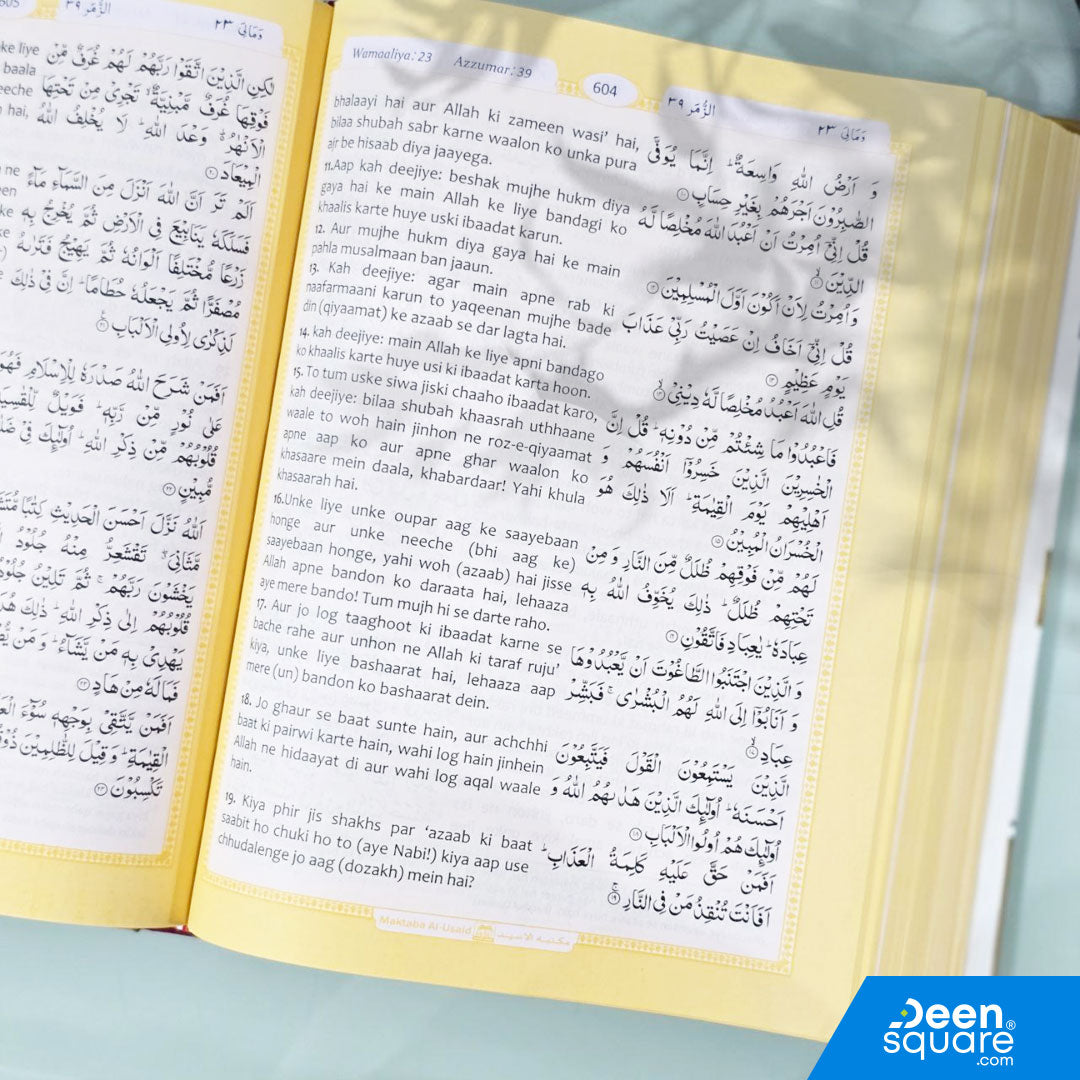 605
الزُّمَر ٣٩
وَمَالِىَ ٢٣
ke liye
baala
eeche
n hai,
لٰكِنِ الَّذِيْنَ اتَّقَوْا رَبَّهُمْ لَهُمْ غُرَفٌ مِّنْ
فَوْقِهَا غُرَفٌ مَّبْنِيَّةٌ ۙ تَجْرِيْ مِنْ تَحْتِهَا
الْاَنْهٰرُ ؕ وَعْدَ اللّٰهِ ؕ لَا يُخْلِفُ اللّٰهُ
الْمِيْعَادَ ۟۲۰
اَلَمْ تَرَ اَنَّ اللّٰهَ اَنْزَلَ مِنَ السَّمَآءِ مَآءً
فَسَلَكَهٗ يَنَابِيْعَ فِي الْاَرْضِ ثُمَّ يُخْرِجُ بِهٖ
زَرْعًا مُّخْتَلِفًا اَلْوَانُهٗ ثُمَّ يَهِيْجُ فَتَرٰىهُ
مُصْفَرًّا ثُمَّ يَجْعَلُهٗ حُطَامًا ؕ اِنَّ فِيْ ذٰلِكَ
لَذِكْرٰى لِاُولِي الْاَلْبَابِ ۟۲۱
اَفَمَنْ شَرَحَ اللّٰهُ صَدْرَهٗ لِلْاِسْلَامِ فَهُوَ
عَلٰى نُوْرٍ مِّنْ رَّبِّهٖ ؕ فَوَيْلٌ لِّلْقٰسِيَةِ
قُلُوْبُهُمْ مِّنْ ذِكْرِ اللّٰهِ ؕ اُولٰٓئِكَ فِيْ
مُّبِيْنٍ ۟۲۲
اَللّٰهُ نَزَّلَ اَحْسَنَ الْحَدِيْثِ كِتٰبًا
مَّثَانِيَ ۖ تَقْشَعِرُّ مِنْهُ جُلُوْدُ
يَخْشَوْنَ رَبَّهُمْ ۚ ثُمَّ تَلِيْنُ
قُلُوْبُهُمْ اِلٰى ذِكْرِ اللّٰهِ ؕ ذٰلِكَ
يَهْدِيْ بِهٖ مَنْ يَّشَآءُ ؕ وَمَنْ
فَمَا لَهٗ مِنْ هَادٍ ۟۲۳
اَفَمَنْ يَّتَّقِيْ بِوَجْهِهٖ سُوْٓءَ
الْقِيٰمَةِ ؕ وَقِيْلَ لِلظّٰلِمِيْنَ
تَكْسِبُوْنَ ۟۲۴
Wamaaliya:23 Azzumar:39
604
الزُّمَر ٣٩
وَمَالِىَ ٢٣
bhalaayi hai aur Allah ki zameen wasi' hai,
bilaa shubah sabr karne waalon ko unka pura
ajr be hisaab diya jaayega.
11.Aap kah deejiye: beshak mujhe hukm diya
gaya hai ke main Allah ke liye bandagi ko
khaalis karte huye uski ibaadat karun.
12. Aur mujhe hukm diya gaya hai ke main
pahla musalmaan ban jaaun.
13. Kah deejiye: agar main apne rab ki
naafarmaani karun to yaqeenan mujhe bade
din (qiyaamat) ke azaab se dar lagta hai.
14. kah deejiye: main Allah ke liye apni bandago
ko khaalis karte huye usi ki ibaadat karta hoon.
15. To tum uske siwa jiski chaaho ibaadat karo,
kah deejiye: bilaa shubah khaasrah uthhaane
waale to woh hain jinhon ne roz-e-qiyaamat
apne aap ko aur apne ghar waalon ko
khasaare mein daala, khabardaar! Yahi khula
khasaarah hai.
16.Unke liye unke oupar aag ke saayebaan
honge aur unke neeche (bhi aag ke)
saayebaan honge, yahi woh (azaab) hai jisse
Allah apne bandon ko daraata hai, lehaaza
aye mere bando! Tum mujh hi se darte raho.
17. Aur jo log taaghoot ki ibaadat karne se
bache rahe aur unhon ne Allah ki taraf ruju'
kiya, unke liye bashaarat hai, lehaaza aap
mere (un) bandon ko bashaarat dein.
18. Jo ghaur se baat sunte hain, aur achchhi
baat ki pairwi karte hain, wahi log hain jinhein
Allah ne hidaayat di aur wahi log aqal waale
hain.
19. Kiya phir jis shakhs par 'azaab ki baat
saabit ho chuki ho to (aye Nabi!) kiya aap use
chhudalenge jo aag (dozakh) mein hai?
وَ اَرْضُ اللّٰهِ وَاسِعَةٌ ؕ اِنَّمَا يُوَفَّى
الصّٰبِرُوْنَ اَجْرَهُمْ بِغَيْرِ حِسَابٍ ۟۱۰
قُلْ اِنِّيْٓ اُمِرْتُ اَنْ اَعْبُدَ اللّٰهَ مُخْلِصًا لَّهُ
الدِّيْنَ ۟ۙ۱۱
وَ اُمِرْتُ لِاَنْ اَكُوْنَ اَوَّلَ الْمُسْلِمِيْنَ ۟۱۲
قُلْ اِنِّيْٓ اَخَافُ اِنْ عَصَيْتُ رَبِّيْ عَذَابَ
يَوْمٍ عَظِيْمٍ ۟۱۳
قُلِ اللّٰهَ اَعْبُدُ مُخْلِصًا لَّهٗ دِيْنِيْ ۟ۙ۱۴
فَاعْبُدُوْا مَا شِئْتُمْ مِّنْ دُوْنِهٖ ؕ قُلْ اِنَّ
الْخٰسِرِيْنَ الَّذِيْنَ خَسِرُوْٓا اَنْفُسَهُمْ وَ
اَهْلِيْهِمْ يَوْمَ الْقِيٰمَةِ ؕ اَلَا ذٰلِكَ هُوَ
الْخُسْرَانُ الْمُبِيْنُ ۟۱۵
لَهُمْ مِّنْ فَوْقِهِمْ ظُلَلٌ مِّنَ النَّارِ وَ مِنْ
تَحْتِهِمْ ظُلَلٌ ؕ ذٰلِكَ يُخَوِّفُ اللّٰهُ بِهٖ
عِبَادَهٗ ؕ يٰعِبَادِ فَاتَّقُوْنِ ۟۱۶
وَ الَّذِيْنَ اجْتَنَبُوا الطَّاغُوْتَ اَنْ يَّعْبُدُوْهَا
وَ اَنَابُوْٓا اِلَى اللّٰهِ لَهُمُ الْبُشْرٰى ۚ فَبَشِّرْ
عِبَادِ ۟ۙ۱۷
الَّذِيْنَ يَسْتَمِعُوْنَ الْقَوْلَ فَيَتَّبِعُوْنَ
اَحْسَنَهٗ ؕ اُولٰٓئِكَ الَّذِيْنَ هَدٰىهُمُ اللّٰهُ وَ
اُولٰٓئِكَ هُمْ اُولُوا الْاَلْبَابِ ۟۱۸
اَفَمَنْ حَقَّ عَلَيْهِ كَلِمَةُ الْعَذَابِ ؕ
اَفَاَنْتَ تُنْقِذُ مَنْ فِي النَّارِ ۟ۚ۱۹
Maktaba Al-Usaid مكتبة الاسيد
Deen
square®
.com